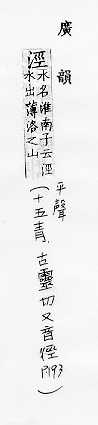 廣韻
涇水名淮南子云涇
水出薄洛之山
(平聲
十五青．古靈切又音徑
P193)